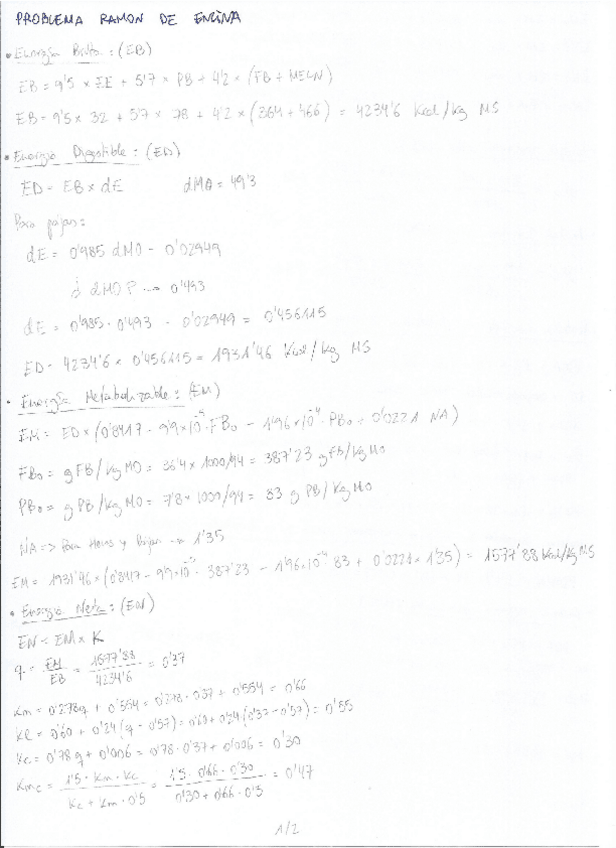 PROBLEMA RAMON DE ENCINA
• Energía Bruta: (EB)
EB = 9'5 × EE + 5'7 × PB + 4'2 × (FB + MELN)
EB = 9'5 × 32 + 5'7 × 78 + 4'2 × (364 + 466) = 4234'6 Kcal/kg MS
• Energía Digestible: (ED)
ED = EB × dE dMO = 49'3
Para pajas:
dE = 0'985 dMO - 0'02949
¿ dMO? → 0'493
dE = 0'985 · 0'493 - 0'02949 = 0'456115
ED = 4234'6 × 0'456115 = 1931'46 Kcal/kg MS
• Energía Metabolizable: (EM)
EM = ED × (0'8417 - 9'9×10⁻⁵ · FBo - 1'96×10⁻⁴ · PBo + 0'0221 NA)
FBo = g FB/kg MO = 36'4 × 1000/94 = 387'23 g FB/kg MO
PBo = g PB/kg MO = 7'8 × 1000/94 = 83 g PB/kg MO
NA => Para Henos y Pajas → 1'35
EM = 1931'46 × (0'8417 - 9'9×10⁻⁵ · 387'23 - 1'96×10⁻⁴ · 83 + 0'0221 × 1'35) = 1577'88 Kcal/kg MS
• Energía Neta: (EN)
EN = EM × K
q = EM/EB = 1577'88/4234'6 = 0'37
Km = 0'278q + 0'554 = 0'278 · 0'37 + 0'554 = 0'66
Kl = 0'60 + 0'24 (q - 0'57) = 0'60 + 0'24 (0'37 - 0'57) = 0'55
Kc = 0'78 q + 0'006 = 0'78 · 0'37 + 0'006 = 0'30
Kmc = 1'5 · Km · Kc / Kc + Km · 0'5 = 1'5 · 0'66 · 0'30 / 0'30 + 0'66 · 0'5 = 0'47
1/2